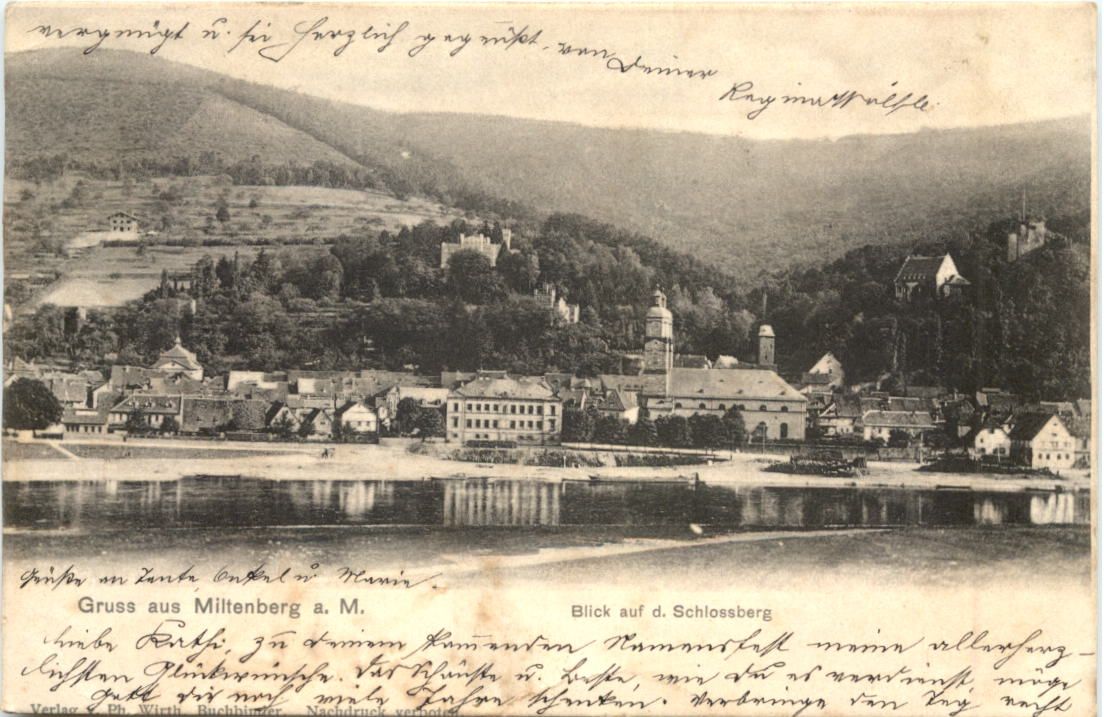 vergnügt u. sei herzlich gegrüßt von Deiner
Regina Wölfle.
Grüße an Tante, Onkel u. Marie.
Gruss aus Miltenberg a. M.
Blick auf d. Schlossberg
Liebe Kathi, zu deinem kom̄enden Namensfest meine allerherz-
lichsten Glückwünsche. Das Schönste u. Beste, wie Du es verdienst, möge
Gott dir noch viele Jahre schenken. Verbringe den Tag recht
Verlag v. Ph. Wirth, Buchbinder. Nachdruck verboten.